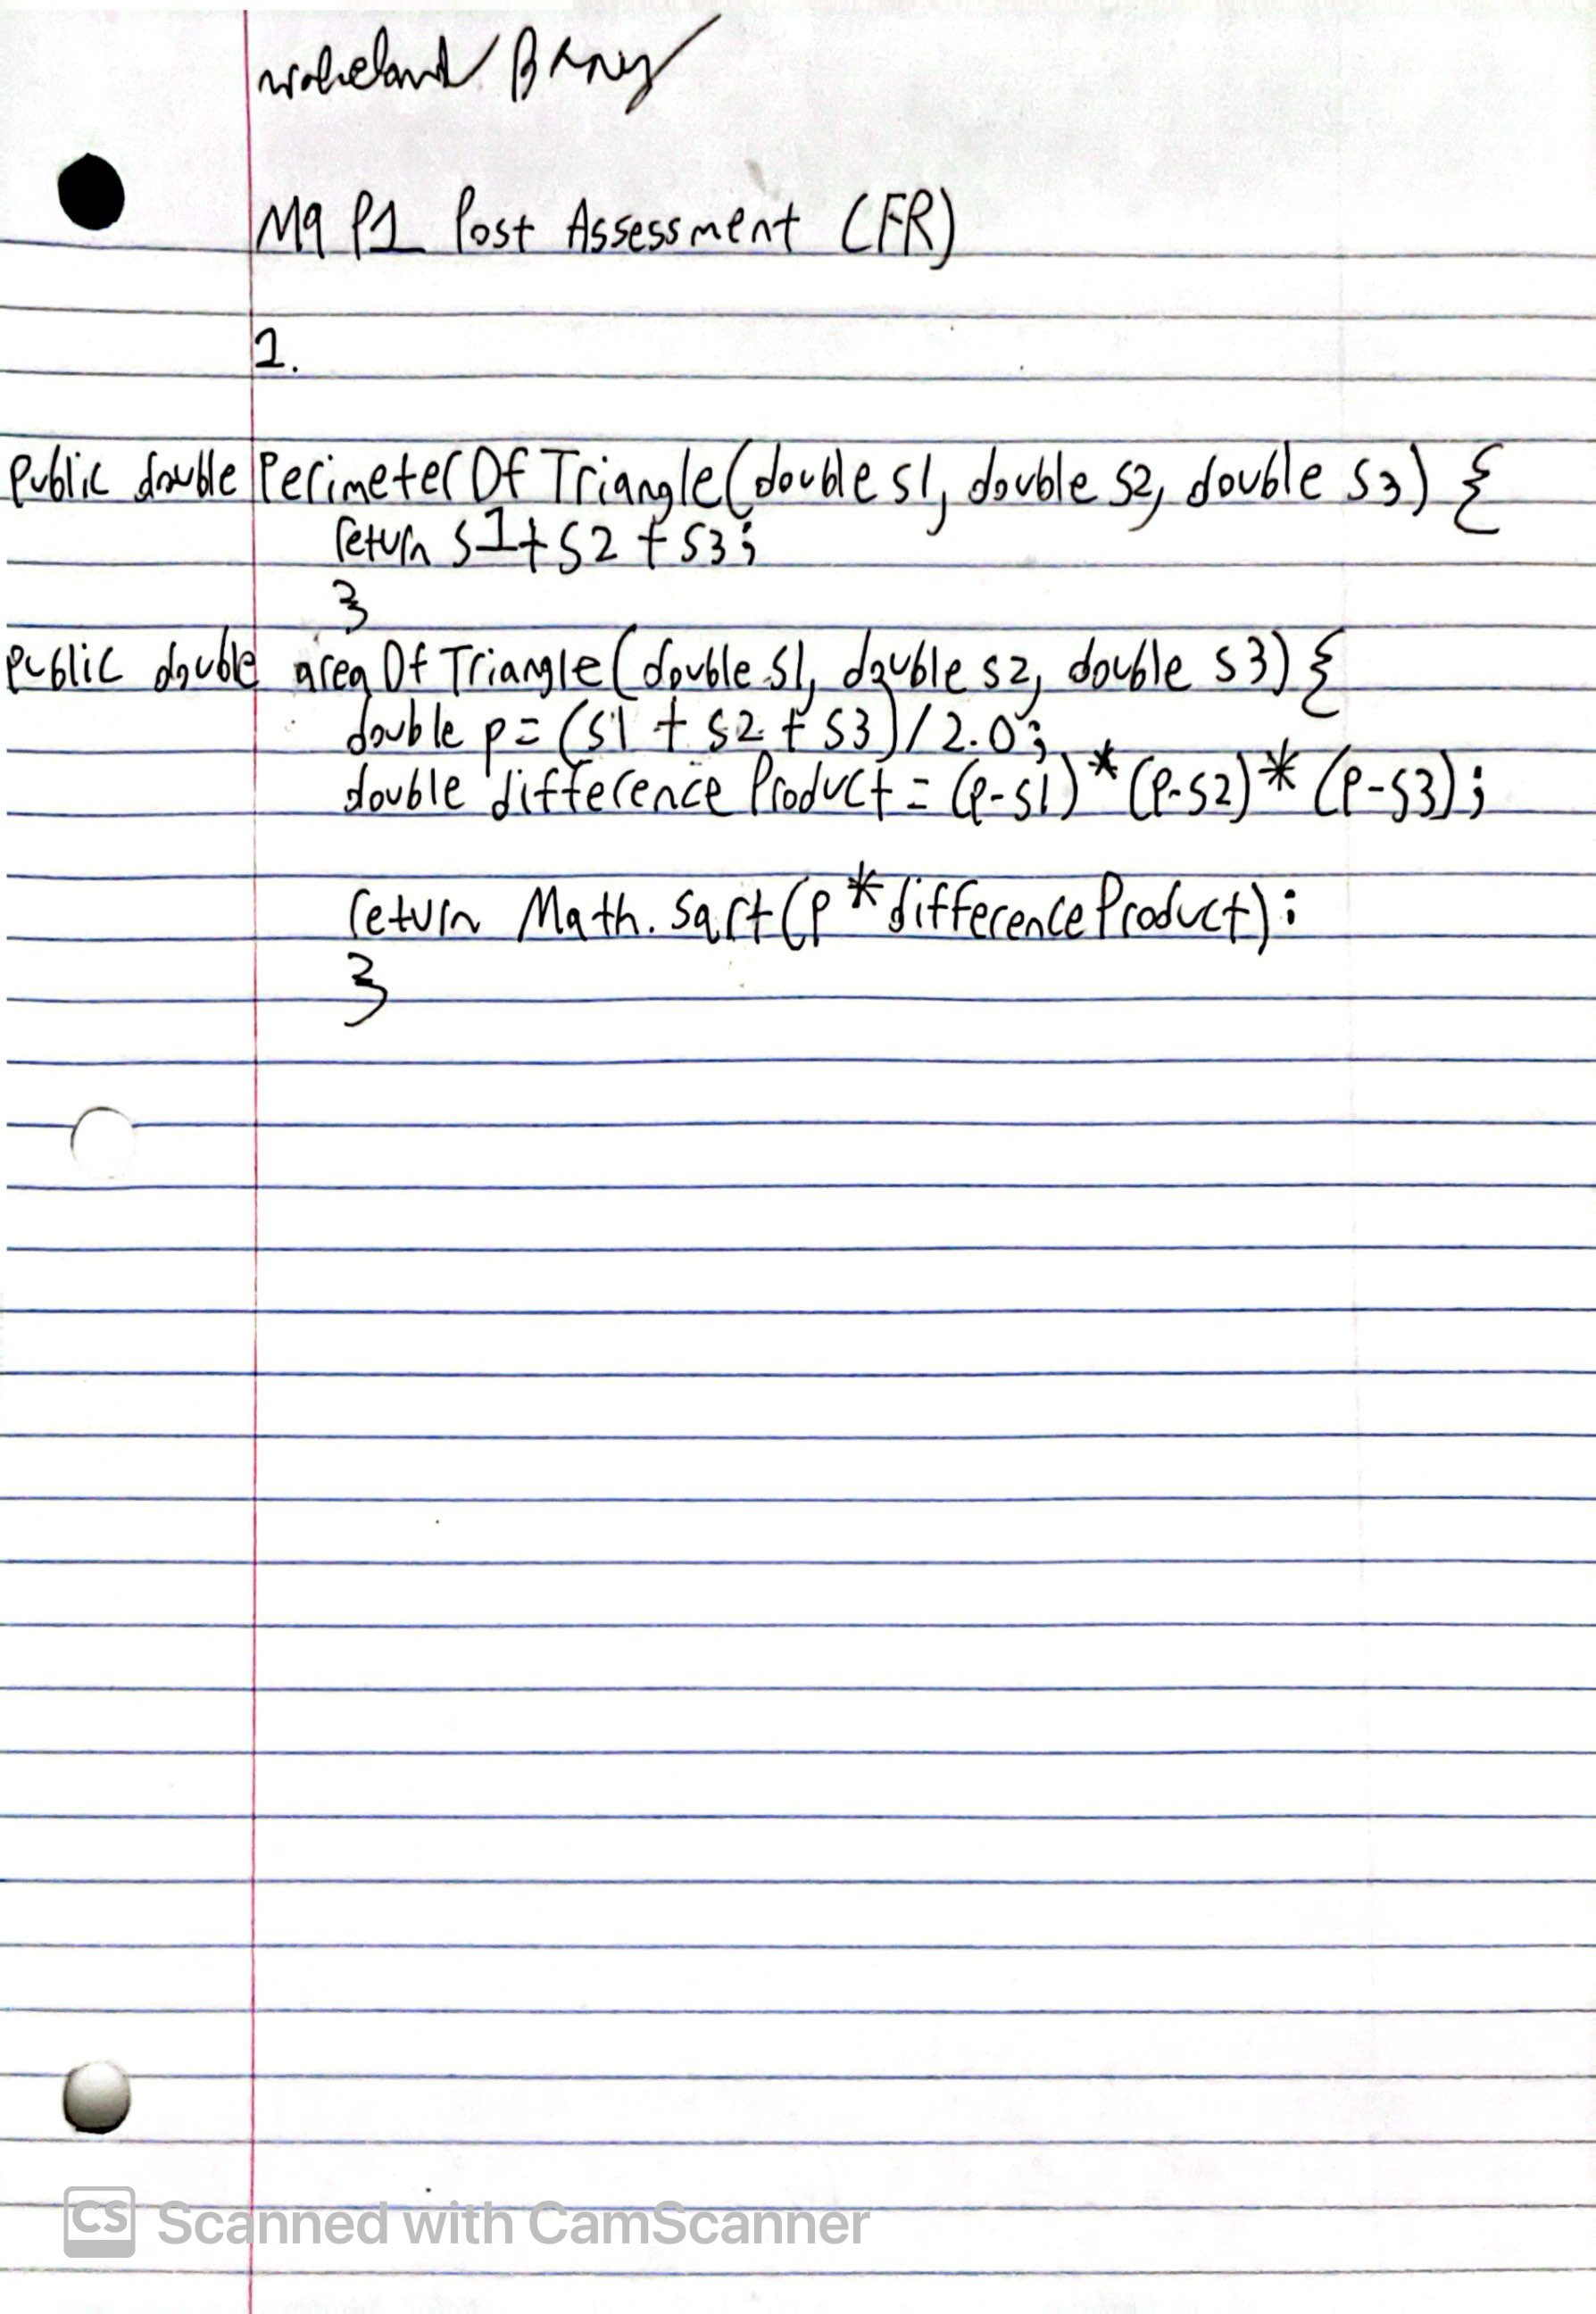 M9 P1 Post Assessment (FR)
1.
public double PerimeterOfTriangle(double s1, double s2, double s3) {
return s1 + s2 + s3;
}
public double areaOfTriangle(double s1, double s2, double s3) {
double p = (s1 + s2 + s3) / 2.0;
double differenceProduct = (p-s1) * (p-s2) * (p-s3);
return Math.sqrt(p * differenceProduct);
}
CS Scanned with CamScanner